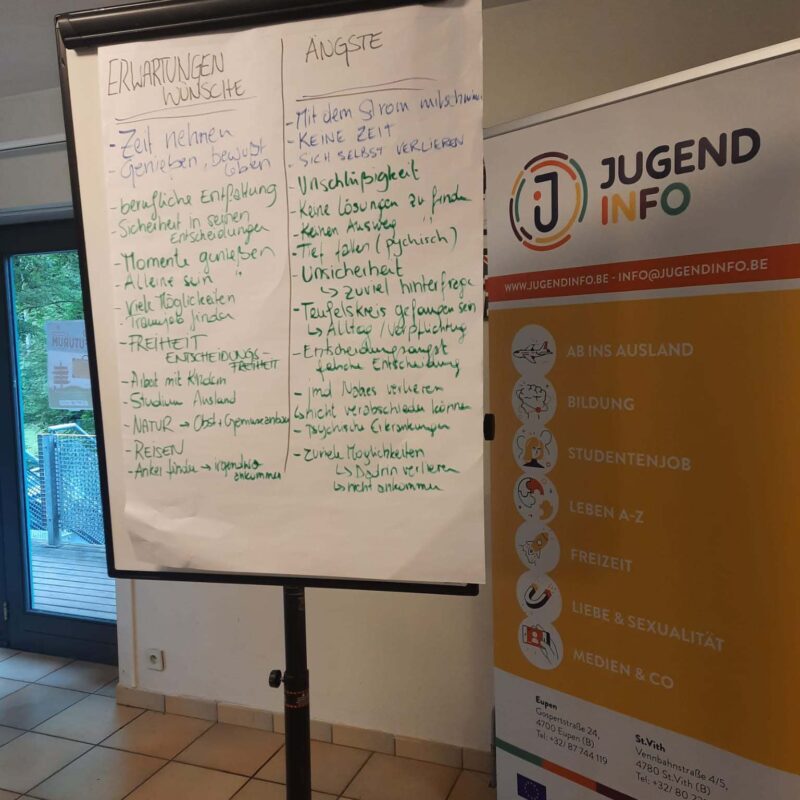 ERWARTUNGEN
WÜNSCHE
- Zeit nehmen
- Genießen, bewußt
leben
- berufliche Entfaltung
- Sicherheit in seinen
Entscheidungen
- Momente genießen
- Alleine sein "
- Viele Möglichkeiten
- Traumjob finden
- FREIHEIT
ENTSCHEIDUNGS-
FREIHEIT
- Arbeit mit Kindern
- Studium Ausland
- NATUR → Obst + Gemüseanbau
- REISEN
- Anker finden → irgendwo
ankommen
ÄNGSTE
- Mit dem Strom mitschwimmen
- KEINE ZEIT
- SICH SELBST VERLIEREN
- Unschlüßigkeit
- Keine Lösungen zu finden
- Keinen Ausweg " "
- Tief fallen (pychisch)
- Unsicherheit
↳ zuviel hinterfrage
- Teufelskreis gefangen sein
↳ Alltag / Verpflichtung
- Entscheidungsangst
falsche Entscheidung
- jmd Nahes verlieren
↳ nicht verabschieden können
- Psychische Erkrankungen
- Zuviele Möglichkeiten
↳ Dadrin verlieren
↳ nicht ankommen
FUTURUM
J
JUGEND
INFO
WWW.JUGENDINFO.BE - INFO@JUGENDINFO.BE
AB INS AUSLAND
BILDUNG
STUDENTENJOB
LEBEN A-Z
FREIZEIT
LIEBE & SEXUALITÄT
MEDIEN & CO
Eupen
Gospertstraße 24,
4700 Eupen (B)
Tel: +32/ 87 744 119
St.Vith
Vennbahnstraße 4/5,
4780 St.Vith (B)
Tel: +32/ 80